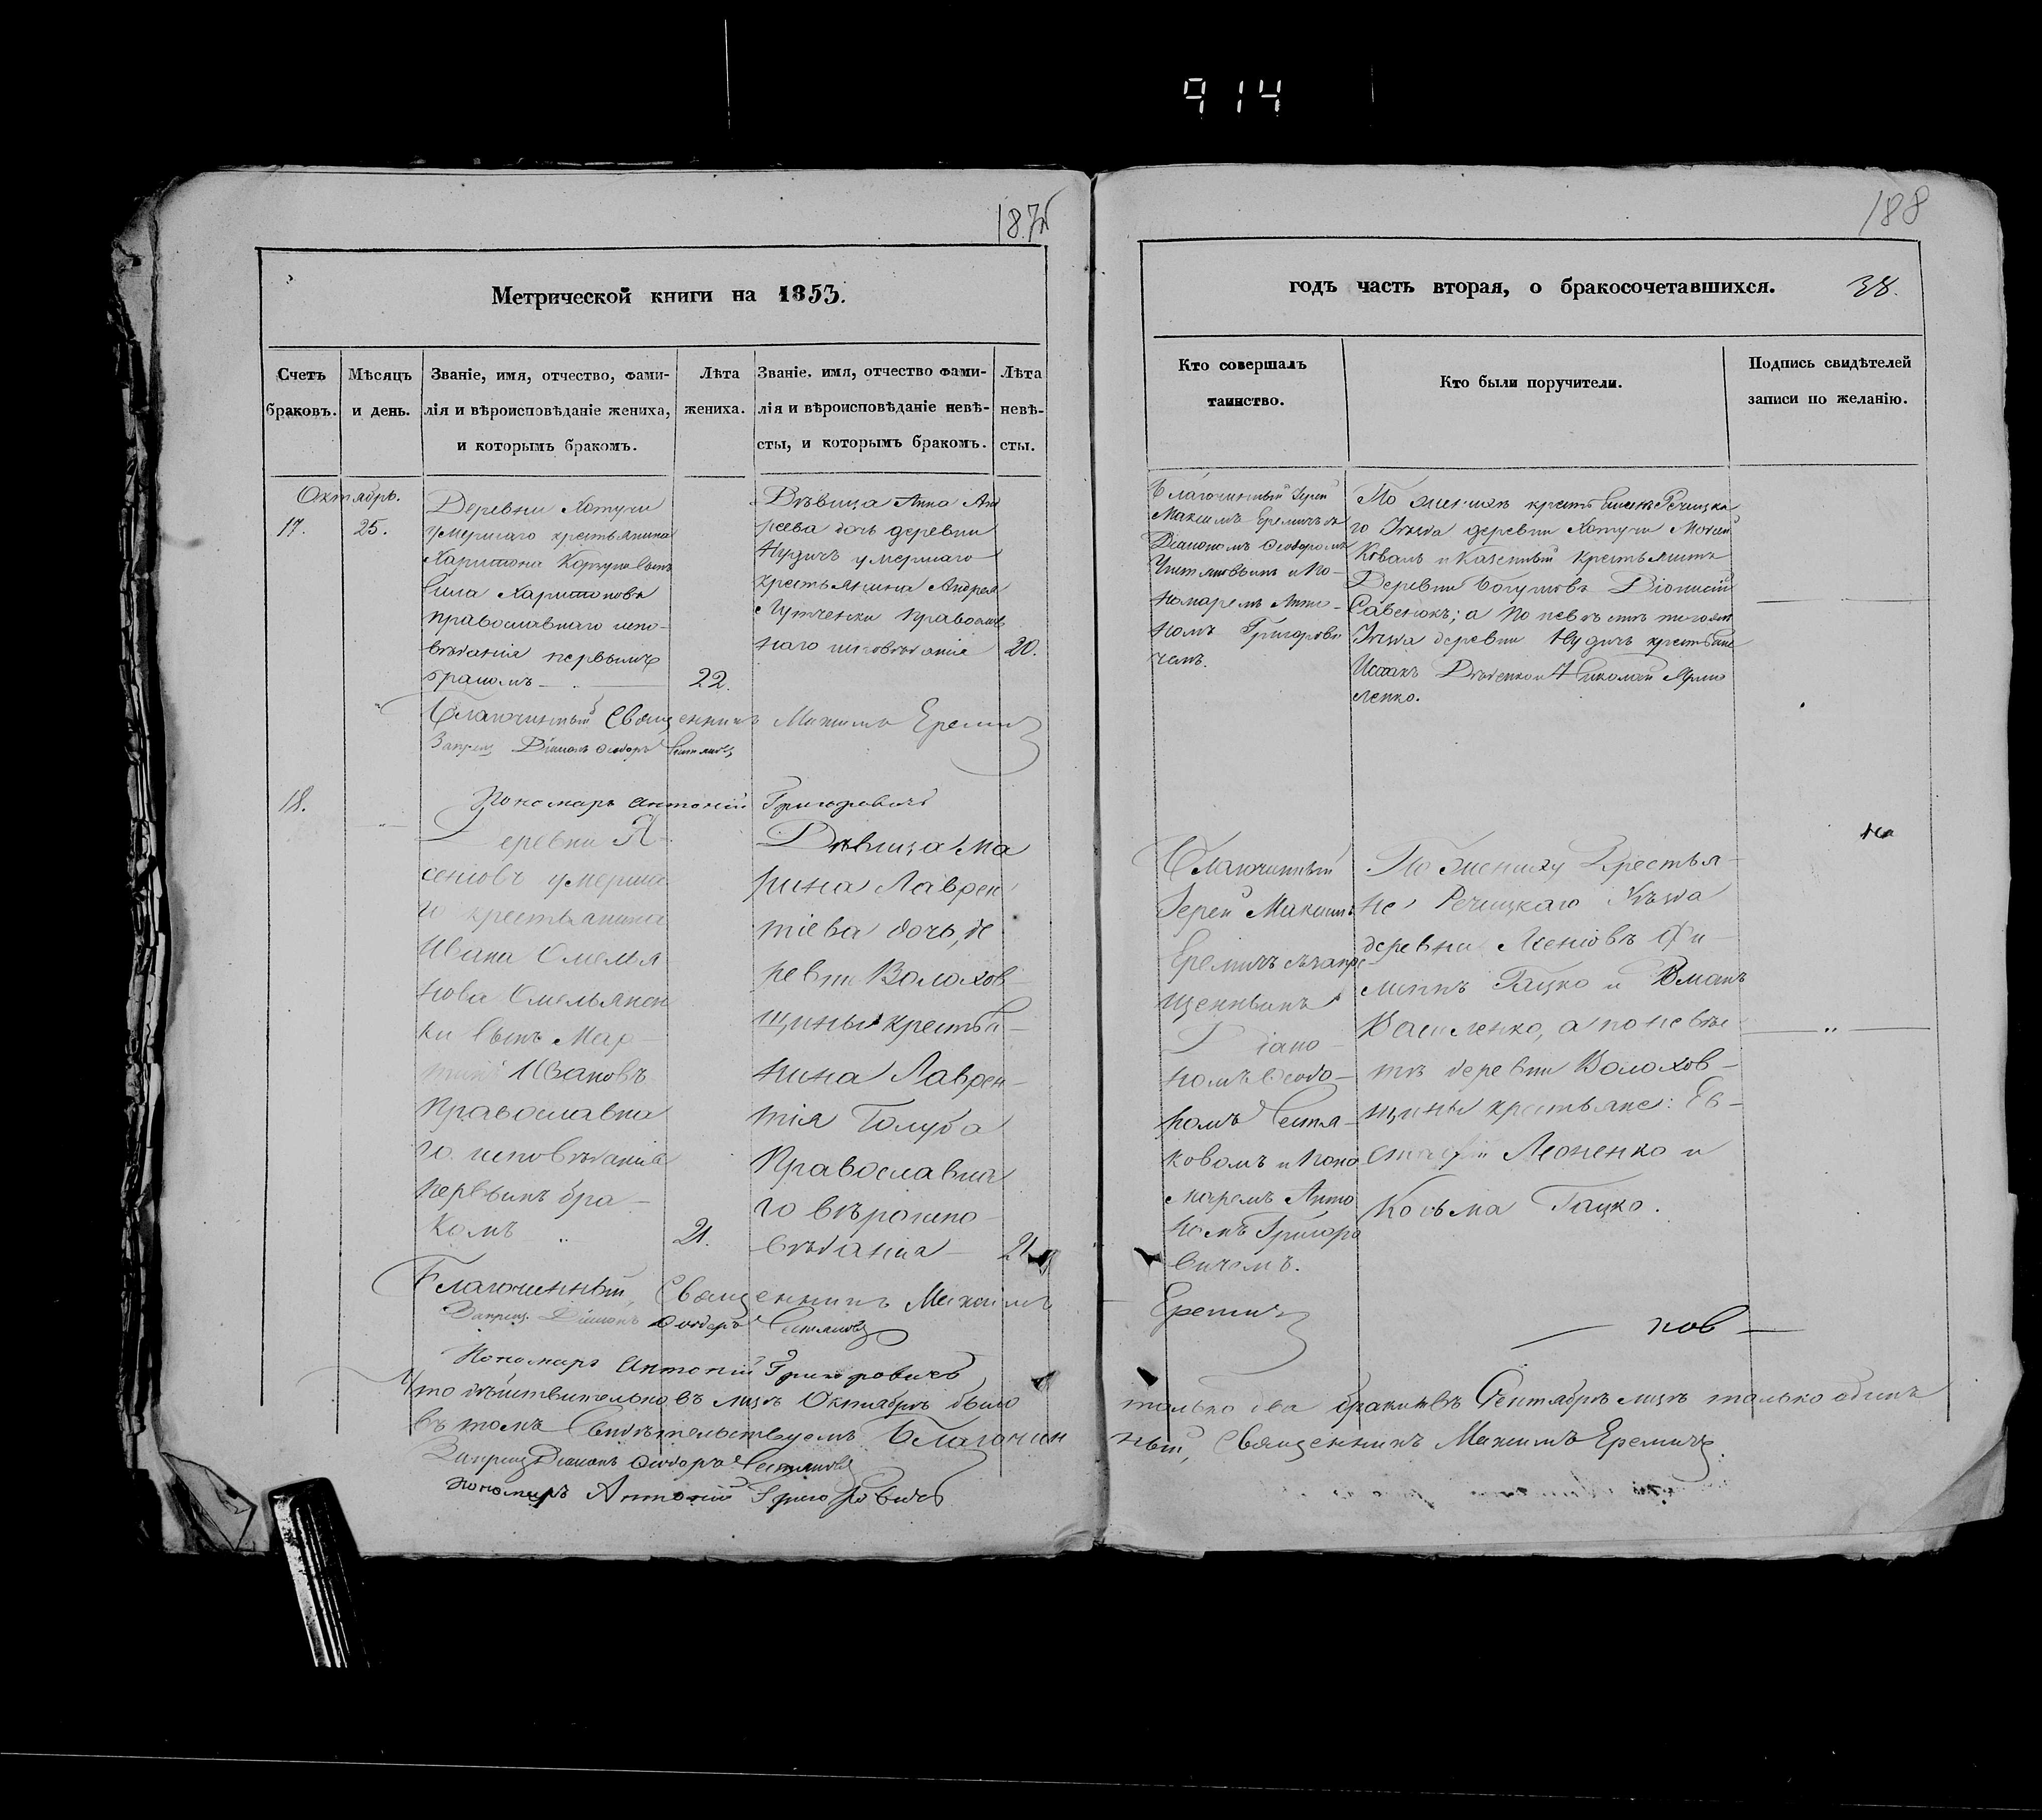 914
187б
188
Метрической книги на 1853.
годъ часть вторая, о бракосочетавшихся.
38.
Счетъ браковъ.
Мѣсяцъ и день.
Званіе, имя, отчество, фами-
лія и вѣроисповѣданіе жениха,
и которымъ бракомъ.
Лѣта
жениха.
Званіе. имя, отчество фами-
лія и вѣроисповѣданіе невѣ-
сты, и которымъ бракомъ.
Лѣта
невѣ-
сты.
Кто совершалъ
таинство.
Кто были поручители.
Подпись свидѣтелей
записи по желанію.
Октябрь.
17.
25.
Деревни Хотучи
умершаго крестьянина
Харитона
Харитоновъ
православнаго испо-
вѣданія первымъ
бракомъ
22.
Дѣвица Анна Анд
реева дочь деревни
Нудичъ умершаго
крестьянина Андрея
православ
наго исповѣданія
20.
Благочинный Іерей
Максимъ Еремичъ съ
Діакономъ Ѳеодоромъ
и По-
номаремъ Анто-
номъ Григорови
чемъ.
По женихѣ Речицка
го Уѣзда деревни Хотучи
Коваль и Казенный крестьянинъ
Деревни Діонисій
Савенокъ; а по невѣстѣ тогожъ
Уѣзда деревни Нудичъ крестьяне
Дѣденко и Николай
ленко.
Благочинный Священникъ Максимъ Еремичъ
Діаконъ Ѳеодоръ
Пономарь Антоній Григоровичъ
18.
Деревни А-
сеніовъ умерша
го крестьянина
Ивана Омелья
нова Омельянен
ки сынъ Мар
Ивановъ
Православна
го исповѣданія
первымъ бра-
комъ
21.
Дѣвица Ма
рина Лаврен
тіева дочь, де
ревни Волохов-
щины крестья-
нина Лаврен-
тія Голуба
Православна
го вѣроиспо-
вѣданія
21
Благочинный
Іерей Максимъ
Еремичъ съ запре-
щеннымъ
Діако-
номъ Ѳеодо-
ромъ
ковомъ и Поно
маремъ Анто
номъ Григоро
вичемъ.
По Жениху Крестья-
не Речицкаго Уѣзда
деревни Асеніовъ Фи-
липпъ Гацко и
Василенко, а по невѣс
тѣ деревни Волохов-
щины крестьяне: Ев-
стафій Леоненко и
Косьма Гацко.
Благочинный, Священникъ Максимъ
Еремичъ
Діаконъ Ѳеодоръ
нов
Пономарь Антоній Григоровичъ
Что дѣйствительно въ мцѣ Октябрѣ было только два брака и въ Сентябрѣ мцѣ только одинъ
въ томъ Свидѣтельствуемъ Благочинный, Священникъ Максимъ Еремичъ
Діаконъ Ѳеодоръ
Пономарь Антоній Григоровичъ